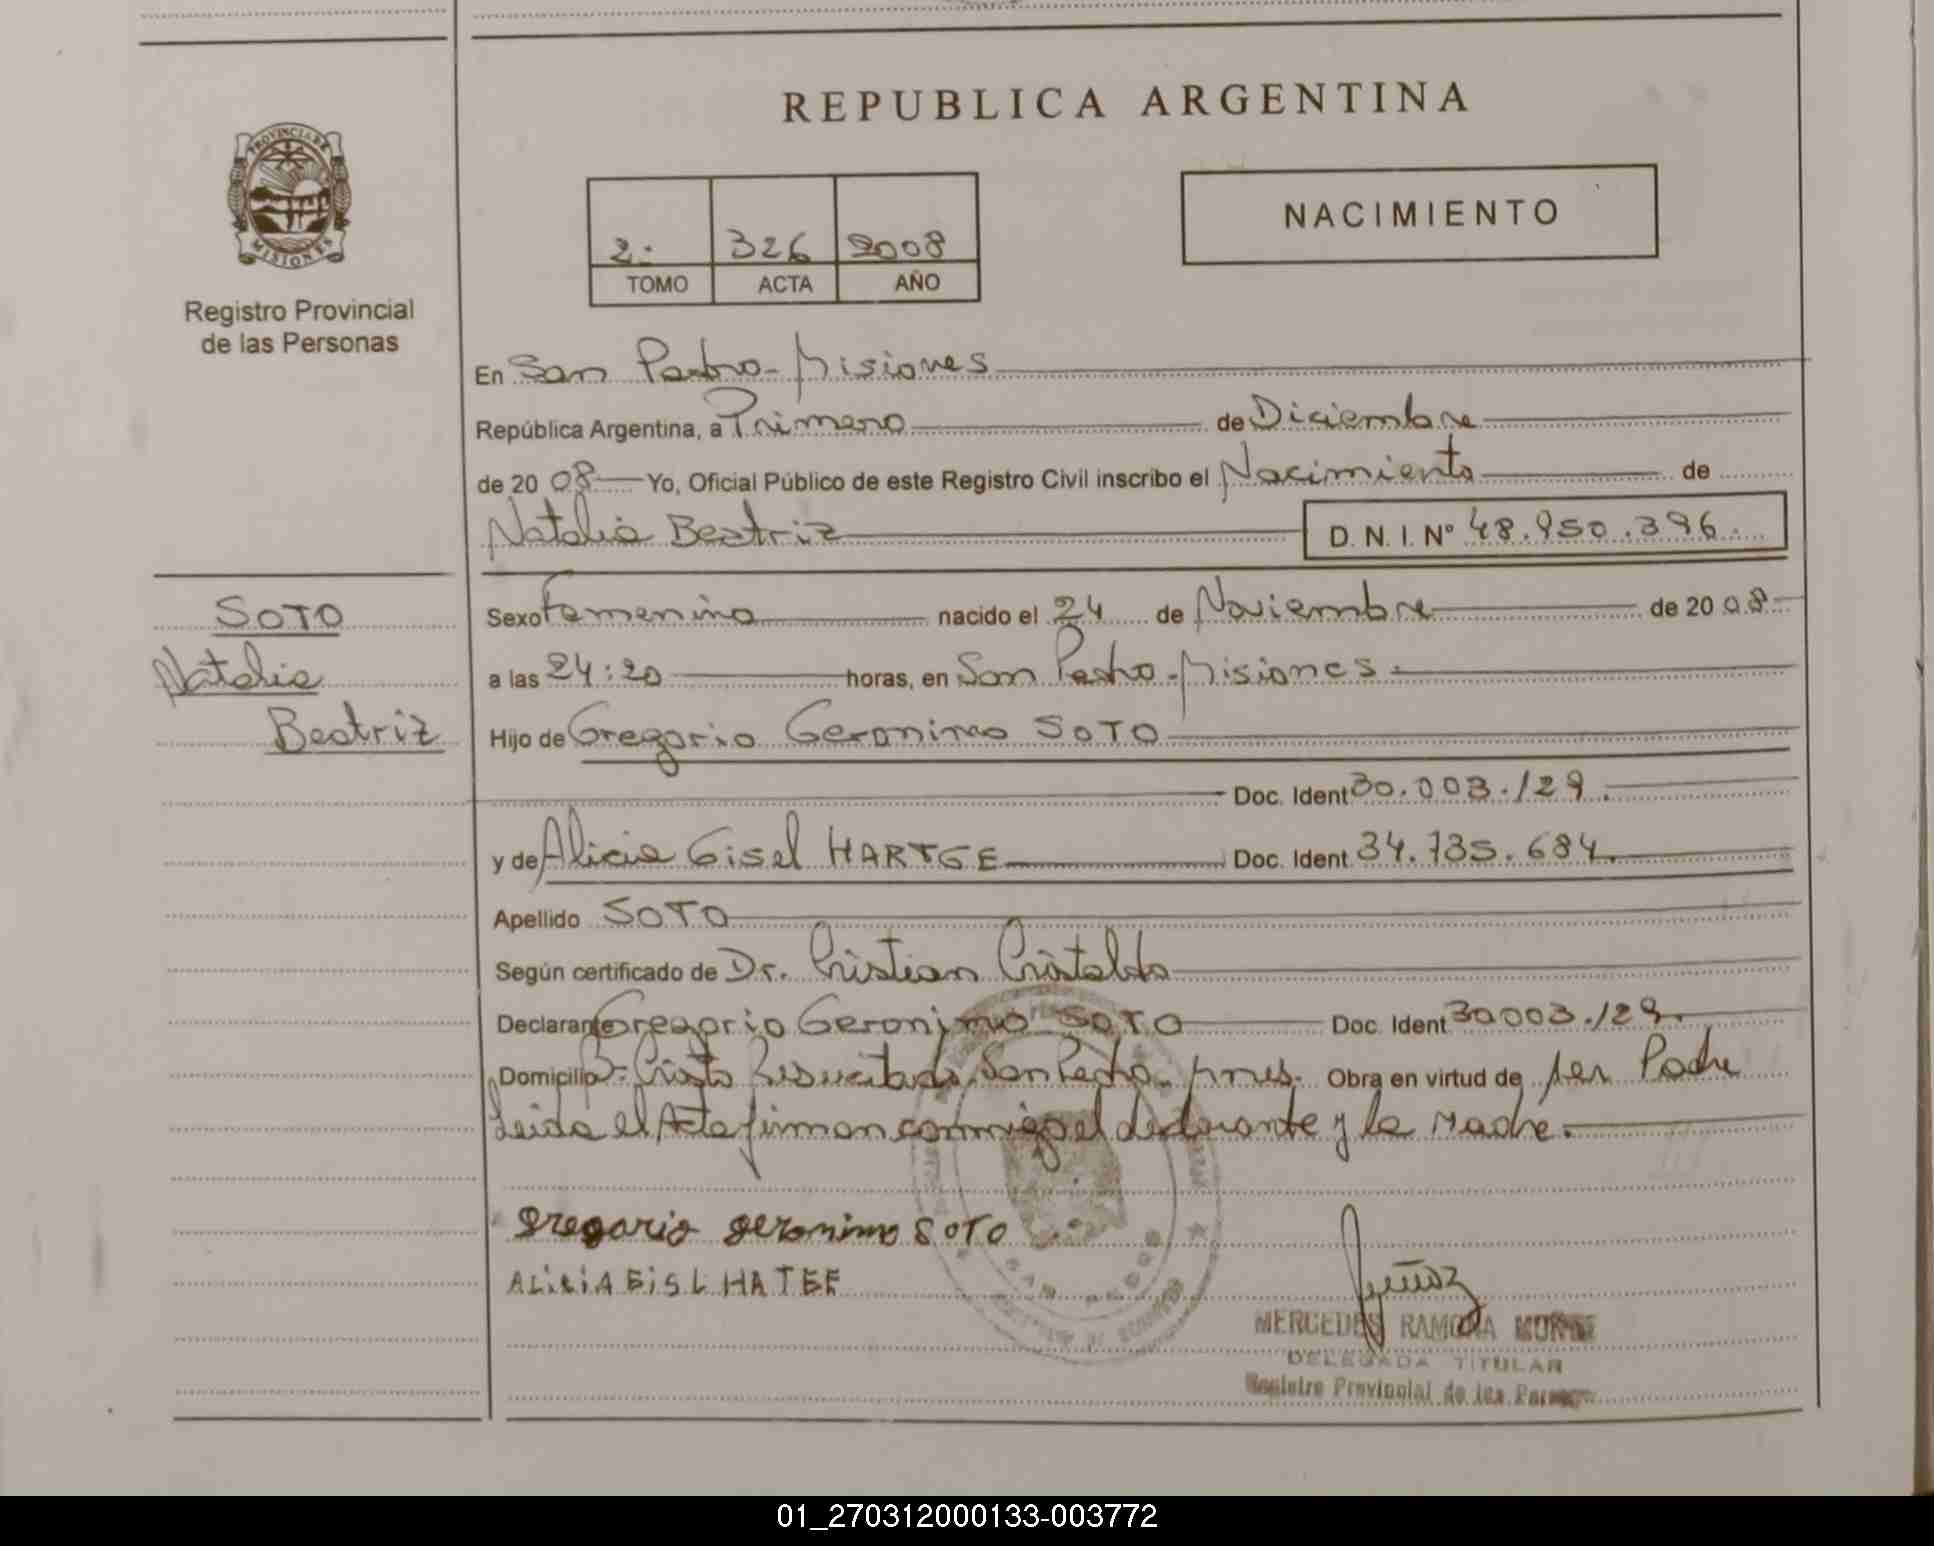 REPUBLICA ARGENTINA
PROVINCIA DE
MISIONES
Registro Provincial
de las Personas
2: 326 2008
TOMO ACTA AÑO
NACIMIENTO
En San Pedro - Misiones
República Argentina, a Primero de Diciembre
de 20 08 Yo, Oficial Público de este Registro Civil inscribo el Nacimiento de
Natalia Beatriz D. N. I. Nº 48.950.396.
SOTO
Natalia
Beatriz
Sexo Femenino nacido el 24 de Noviembre de 20 08
a las 24:20 horas, en San Pedro - Misiones.
Hijo de Gregorio Geronimo SOTO
Doc. Ident 30.003.129.
y de Alicia Gisel HARTGE Doc. Ident. 34.735.684.
Apellido SOTO
Según certificado de Dr. Cristian Cristaldo
Declarante Gregorio Geronimo SOTO Doc. Ident 30003.129.
Domicilio B: Cristo Resucitado, San Pedro - Mnes. Obra en virtud de ser Padre
Leida el Acta firman conmigo el declarante y la Madre.
Gregorio geronimo SOTO
ALiciA EiSL HATEE
Muñoz
MERCEDES RAMONA MUÑOZ
DELEGADA TITULAR
Registro Provincial de las Personas
SAN PEDRO
01_270312000133-003772